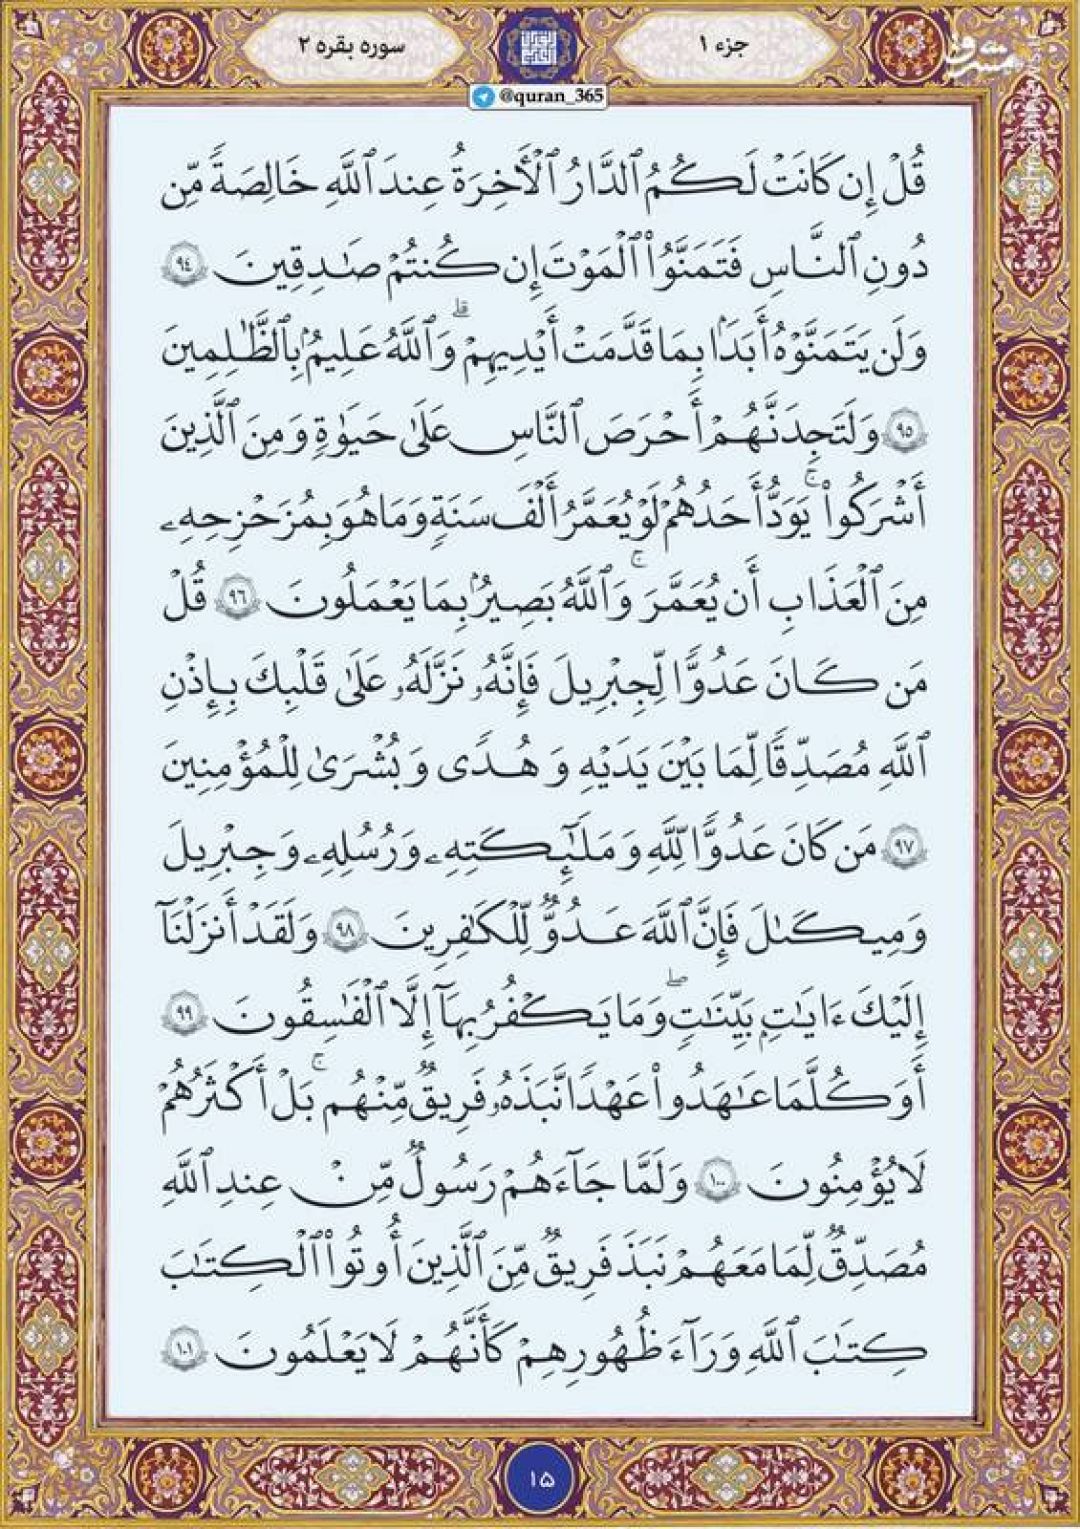 جزء ۱
سوره بقره ۲
@quran_365
مشرق
mashreghnews
قُلْ إِن كَانَتْ لَكُمُ ٱلدَّارُ ٱلْأَخِرَةُ عِندَ ٱللَّهِ خَالِصَةً مِّن
دُونِ ٱلنَّاسِ فَتَمَنَّوُا۟ ٱلْمَوْتَ إِن كُنتُمْ صَـٰدِقِينَ ٩٤
وَلَن يَتَمَنَّوْهُ أَبَدًۢا بِمَا قَدَّمَتْ أَيْدِيهِمْ ۗ وَٱللَّهُ عَلِيمٌۢ بِٱلظَّـٰلِمِينَ
٩٥ وَلَتَجِدَنَّهُمْ أَحْرَصَ ٱلنَّاسِ عَلَىٰ حَيَوٰةٍ وَمِنَ ٱلَّذِينَ
أَشْرَكُوا۟ ۚ يَوَدُّ أَحَدُهُمْ لَوْ يُعَمَّرُ أَلْفَ سَنَةٍ وَمَا هُوَ بِمُزَحْزِحِهِۦ
مِنَ ٱلْعَذَابِ أَن يُعَمَّرَ ۗ وَٱللَّهُ بَصِيرٌۢ بِمَا يَعْمَلُونَ ٩٦ قُلْ
مَن كَانَ عَدُوًّا لِّجِبْرِيلَ فَإِنَّهُۥ نَزَّلَهُۥ عَلَىٰ قَلْبِكَ بِإِذْنِ
ٱللَّهِ مُصَدِّقًا لِّمَا بَيْنَ يَدَيْهِ وَهُدًى وَبُشْرَىٰ لِلْمُؤْمِنِينَ
٩٧ مَن كَانَ عَدُوًّا لِّلَّهِ وَمَلَـٰٓئِكَتِهِۦ وَرُسُلِهِۦ وَجِبْرِيلَ
وَمِيكَىٰلَ فَإِنَّ ٱللَّهَ عَدُوٌّ لِّلْكَـٰفِرِينَ ٩٨ وَلَقَدْ أَنزَلْنَآ
إِلَيْكَ ءَايَـٰتٍۭ بَيِّنَـٰتٍ ۖ وَمَا يَكْفُرُ بِهَآ إِلَّا ٱلْفَـٰسِقُونَ ٩٩
أَوَكُلَّمَا عَـٰهَدُوا۟ عَهْدًا نَّبَذَهُۥ فَرِيقٌ مِّنْهُم ۚ بَلْ أَكْثَرُهُمْ
لَا يُؤْمِنُونَ ١٠٠ وَلَمَّا جَآءَهُمْ رَسُولٌ مِّنْ عِندِ ٱللَّهِ
مُصَدِّقٌ لِّمَا مَعَهُمْ نَبَذَ فَرِيقٌ مِّنَ ٱلَّذِينَ أُوتُوا۟ ٱلْكِتَـٰبَ
كِتَـٰبَ ٱللَّهِ وَرَآءَ ظُهُورِهِمْ كَأَنَّهُمْ لَا يَعْلَمُونَ ١٠١
۱۵